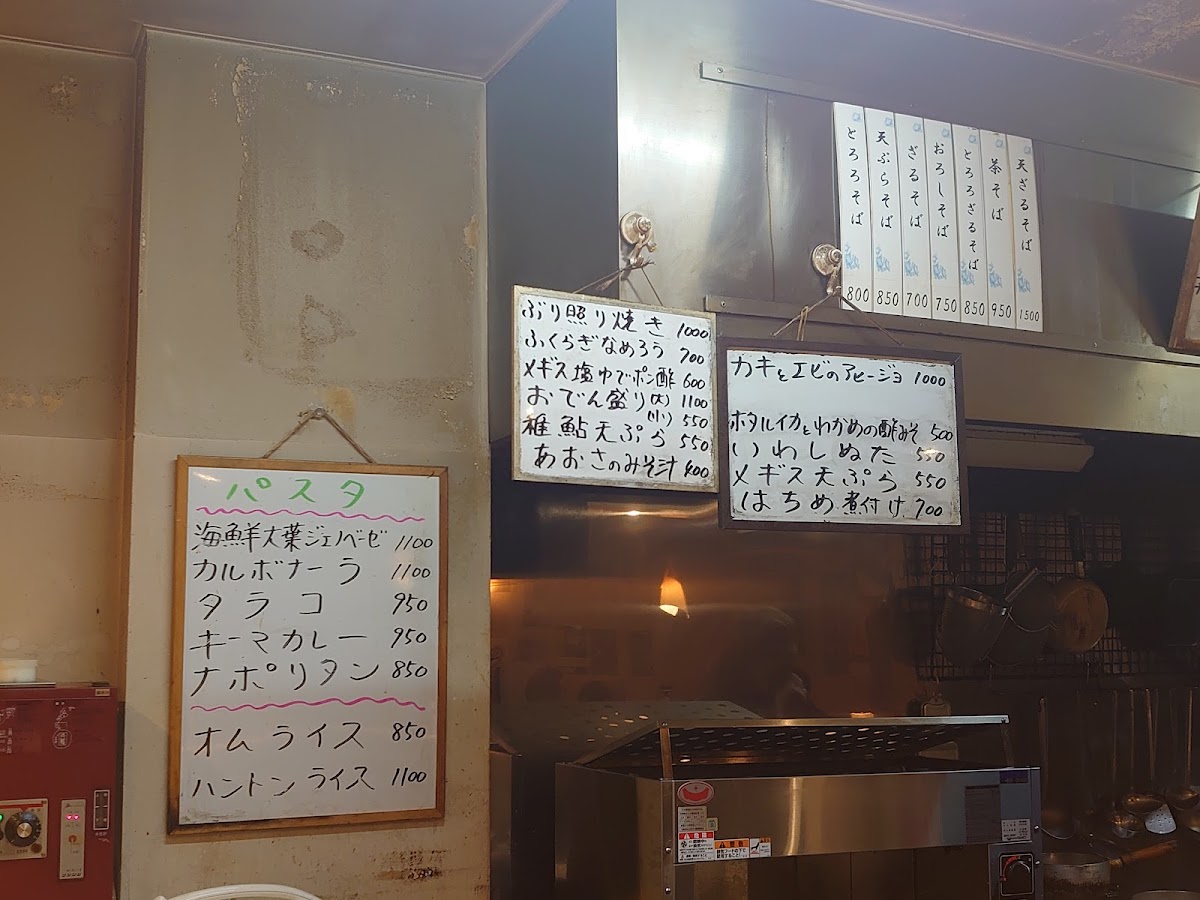 パスタ
海鮮大葉ジェノベーゼ 1100
カルボナーラ 1100
タラコ 950
キーマカレー 950
ナポリタン 850
オムライス 850
ハントンライス 1100
ぶり照り焼き 1000
ふくらぎなめろう 700
メギス塩ゆでポン酢 600
おでん盛り(大) 1100
(小) 550
稚鮎天ぷら 550
あおさのみそ汁 400
カキとエビのアヒージョ 1000
ホタルイカとわかめの酢みそ 500
いわしぬた 550
メギス天ぷら 550
はちめ煮付け 700
天ざるそば 1500
茶そば 950
とろろざるそば 850
おろしそば 750
ざるそば 700
天ぷらそば 850
とろろそば 800